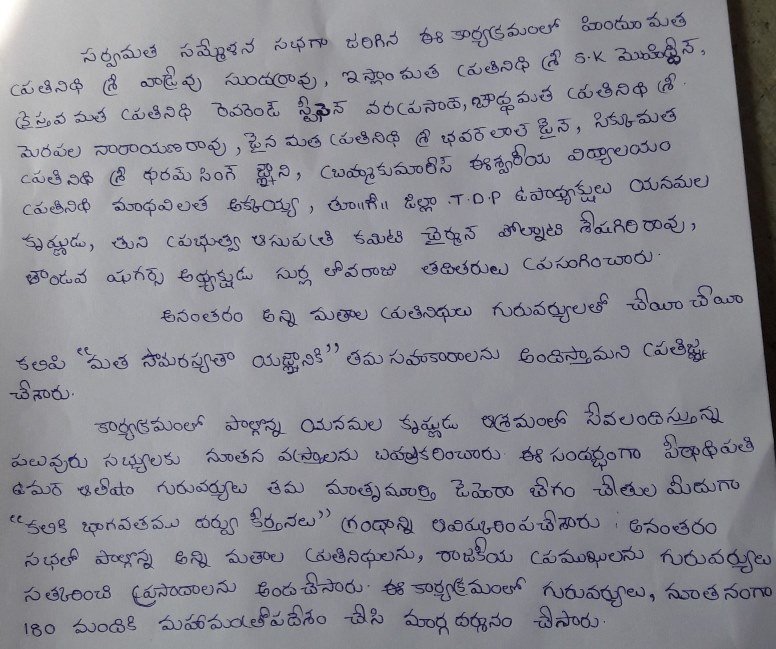 సర్వమత సమ్మేళన సభగా జరిగిన ఈ కార్యక్రమంలో హిందూ మత
ప్రతినిధి శ్రీ వాడ్రేవు సుందర్రావు, ఇస్లాం మత ప్రతినిధి శ్రీ S.K మొహిద్దీన్,
క్రైస్తవ మత ప్రతినిధి రెవరెండ్ స్టీవెన్ వరప్రసాద్, బౌద్ధ మత ప్రతినిధి శ్రీ
మెరపల నారాయణరావు, జైన మత ప్రతినిధి శ్రీ భవర్ లాల్ జైన్, సిక్కు మత
ప్రతినిధి శ్రీ ధరమ్ సింగ్ జ్ఞాని, బ్రహ్మకుమారీస్ ఈశ్వరీయ విద్యాలయం
ప్రతినిధి మాధవిలత అక్కయ్య, తూ॥గో॥ జిల్లా T.D.P ఉపాధ్యక్షులు యనమల
కృష్ణుడు, తుని ప్రభుత్వ ఆసుపత్రి కమిటి ఛైర్మన్ పోల్నాటి శేషగిరిరావు,
తాండవ షుగర్స్ అధ్యక్షుడు సుర్ల లోవరాజు తదితరులు ప్రసంగించారు.
అనంతరం అన్ని మతాల ప్రతినిధులు గురువర్యులతో చేయీ చేయీ
కలిపి "మత సామరస్యతా యజ్ఞానికి" తమ సహకారాలను అందిస్తామని ప్రతిజ్ఞ
చేశారు.
కార్యక్రమంలో పాల్గొన్న యనమల కృష్ణుడు ఆశ్రమంలో సేవలందిస్తున్న
పలువురు సభ్యులకు నూతన వస్త్రాలను బహుకరించారు. ఈ సందర్భంగా పీఠాధిపతి
ఉమర్ ఆలీషా గురువర్యులు తమ మాతృమూర్తి జెహెరా బేగం చేతుల మీదుగా
"కలికి భాగవతము దర్వు కీర్తనలు" గ్రంథాన్ని ఆవిష్కరింపచేశారు. అనంతరం
సభలో పాల్గొన్న అన్ని మతాల ప్రతినిధులను, రాజకీయ ప్రముఖులను గురువర్యులు
సత్కరించి ప్రసాదాలను అందచేసారు. ఈ కార్యక్రమంలో గురువర్యులు, నూతనంగా
180 మందికి మహామంత్రోపదేశం చేసి మార్గదర్శనం చేసారు.